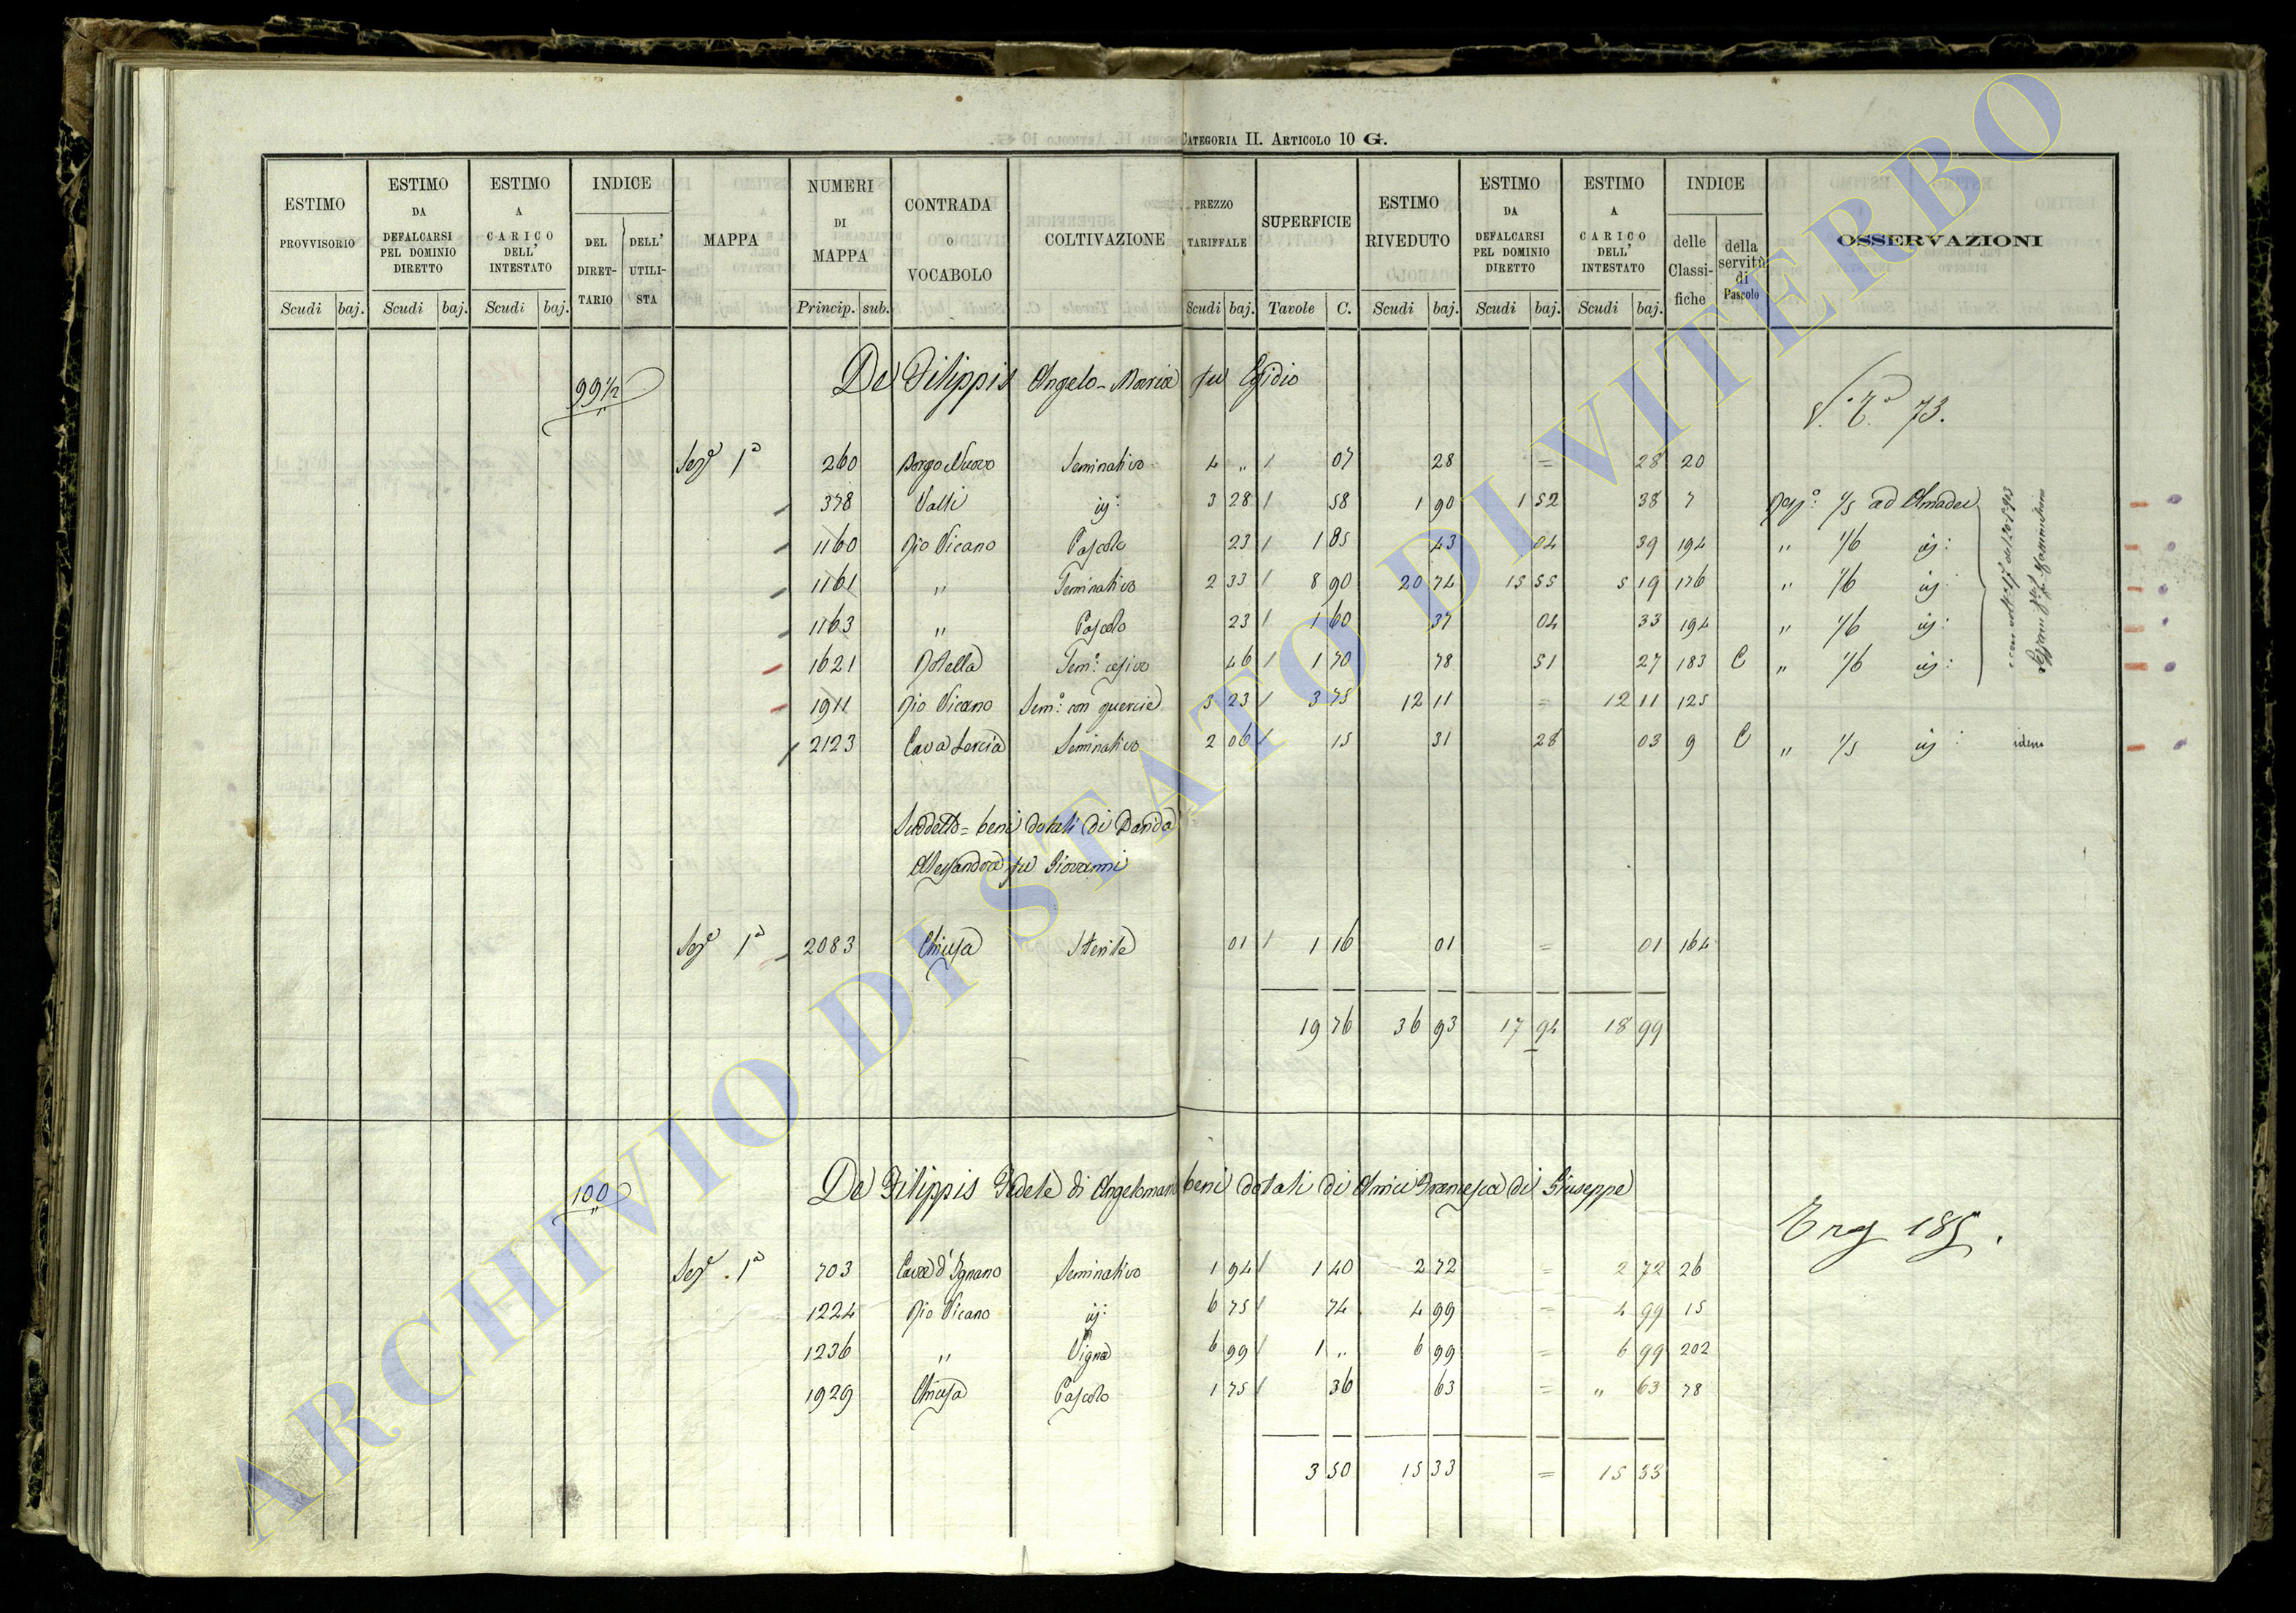 CATEGORIA II. ARTICOLO 10 G.
ESTIMO PROVVISORIO
ESTIMO DA DEFALCARSI PEL DOMINIO DIRETTO
ESTIMO A CARICO DELL' INTESTATO
INDICE
DEL DIRET-TARIO
DELL' UTILI-STA
MAPPA
NUMERI DI MAPPA
CONTRADA O VOCABOLO
COLTIVAZIONE
PREZZO TARIFFALE
SUPERFICIE
ESTIMO RIVEDUTO
ESTIMO DA DEFALCARSI PEL DOMINIO DIRETTO
ESTIMO A CARICO DELL' INTESTATO
INDICE
delle Classi-fiche
della servitù di Pascolo
OSSERVAZIONI
Scudi baj. Scudi baj. Scudi baj. Princip. sub. Scudi baj. Tavole C. Scudi baj. Scudi baj. Scudi baj.
99 1/2 De Filippis Angelo-Maria fu Egidio
73.
Sez.e 1a 260 Borgo Nuovo Seminativo 4 " 07 28 = 28 20
378 Valli id: 3 28 58 1 90 1 52 38 7 Risp.o 1/5 ad Amadei
1160 Rio Vicano Pascolo 23 1 85 43 04 39 194 " 1/6 id:
1161 " Seminativo 2 33 8 90 20 74 15 55 5 19 176 " 1/6 id:
1163 " Pascolo 23 1 60 37 04 33 194 " 1/6 id:
1621 Rotella Sem.o cesivo 46 1 70 78 51 27 183 C " 1/6 id:
1911 Rio Vicano Sem.o con quercie 3 23 3 75 12 11 = 12 11 125
2123 Cava Lercia Seminativo 2 06 15 31 28 03 9 C " 1/5 id: idem
Suddetto = beni dotali di Danda
Alessandra fu Giovanni
Sez.e 1a 2083 Chiusa Sterile 01 1 16 01 = 01 164
19 76 36 93 17 94 18 99
100 De Filippis Fedele di Angelomaria beni dotali di Amici Francesca di Giuseppe
Erg 185.
Sez.e 1a 703 Cava d'Ignano Seminativo 1 94 1 40 2 72 = 2 72 26
1224 Rio Vicano id: 6 75 74 4 99 = 4 99 15
1236 " Vigna 6 99 1 " 6 99 = 6 99 202
1929 Chiusa Pascolo 1 75 36 63 = " 63 78
3 50 15 33 = 15 33
ARCHIVIO DI STATO DI VITERBO